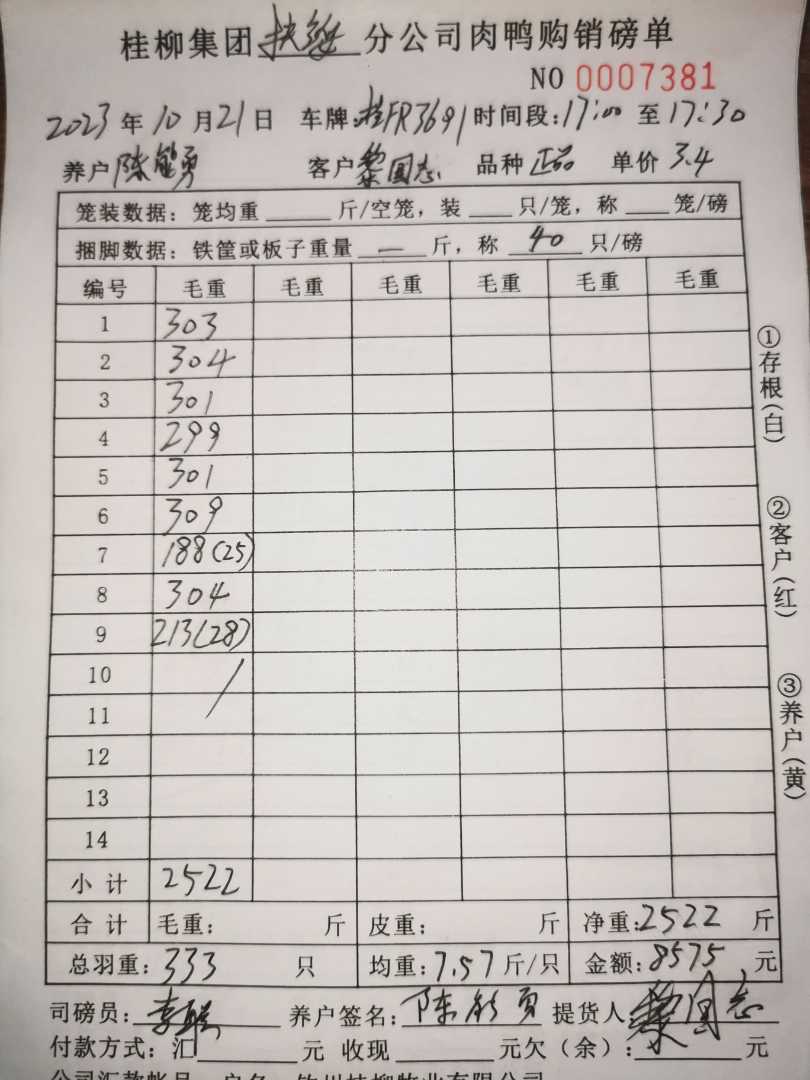 桂柳集团扶绥分公司肉鸭购销磅单
NO 0007381
2023年10月21日 车牌:桂FR3691 时间段:17:00至17:30
养户 陈能勇 客户 黎国志 品种 正品 单价 3.4
笼装数据:笼均重____斤/空笼,装____只/笼,称____笼/磅
捆脚数据:铁筐或板子重量 — 斤,称 40 只/磅
编号 毛重 毛重 毛重 毛重 毛重 毛重
1 303
2 304
3 301
4 299
5 301
6 309
7 188(25)
8 304
9 213(28)
10 /
11
12
13
14
小计 2522
合计 毛重: 斤 皮重: 斤 净重:2522 斤
总羽重:333 只 均重:7.57斤/只 金额:8575 元
司磅员: 养户签名:陈能勇 提货人:黎国志
付款方式:汇____元 收现____元欠(余):____元
①存根(白)
②客户(红)
③养户(黄)